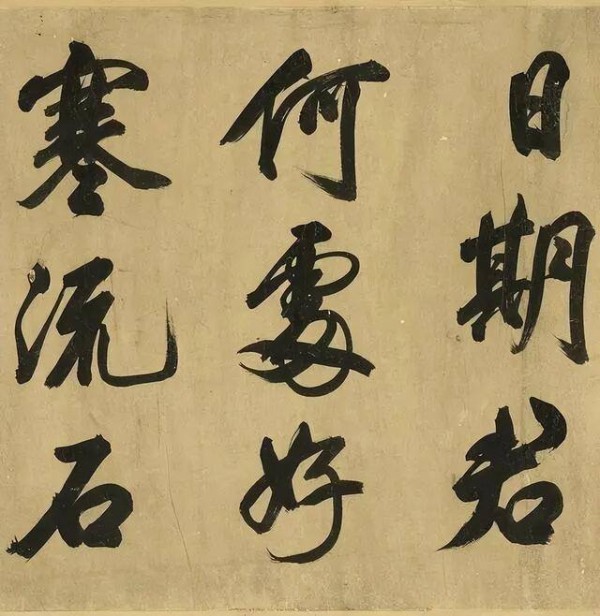 日期君
何處好
寒流石